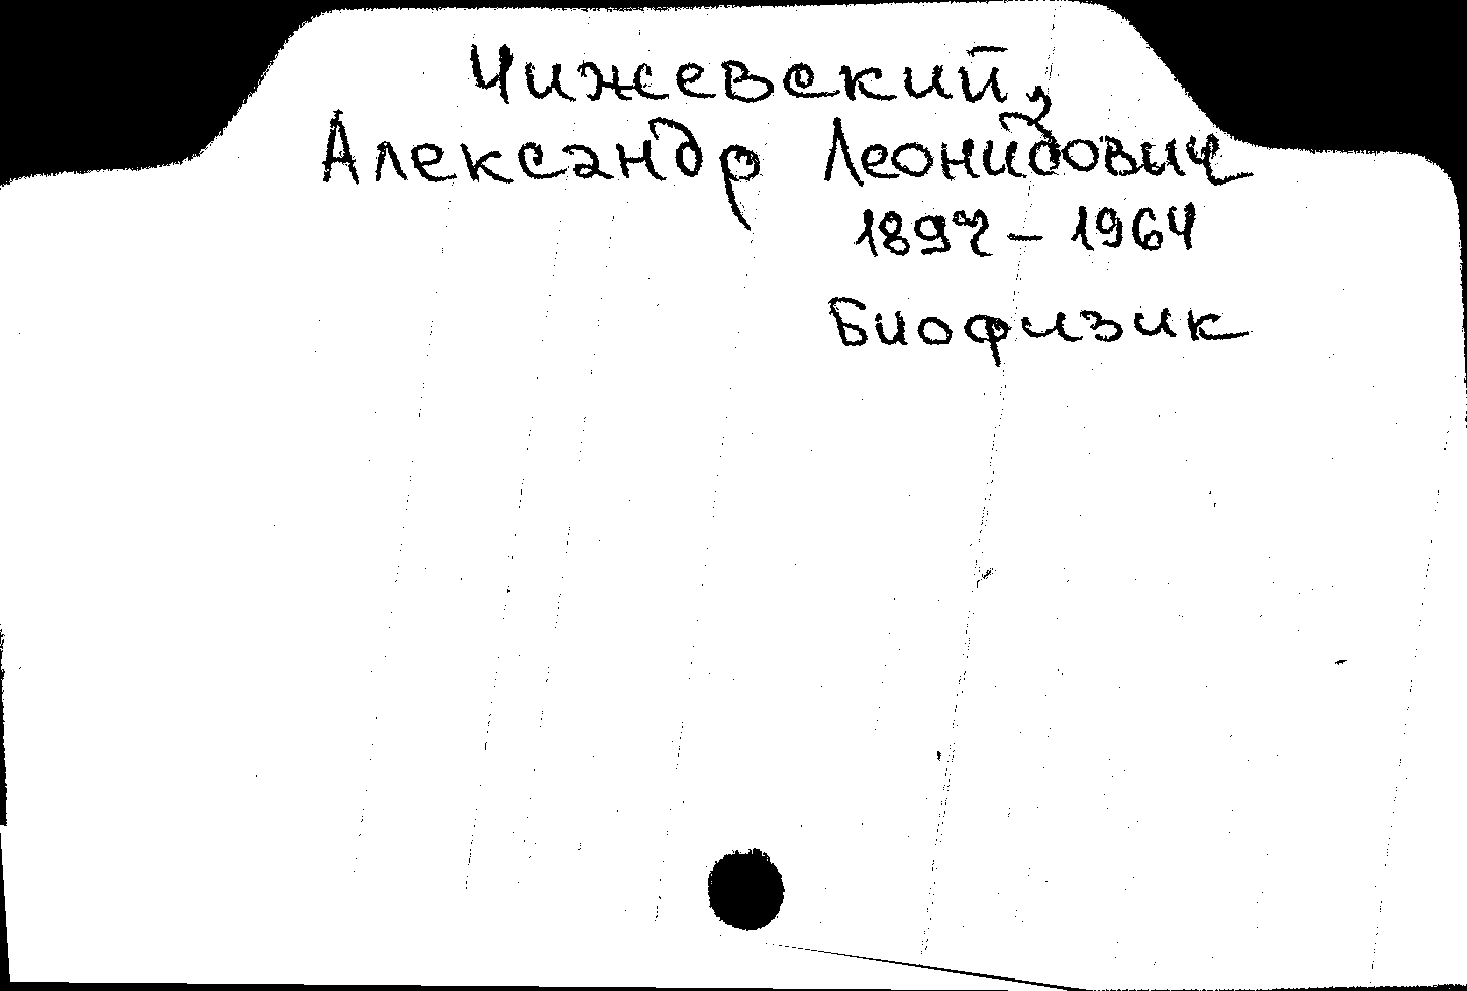 Чижевский,
Александр Леонидович
1897 – 1964
Биофизик